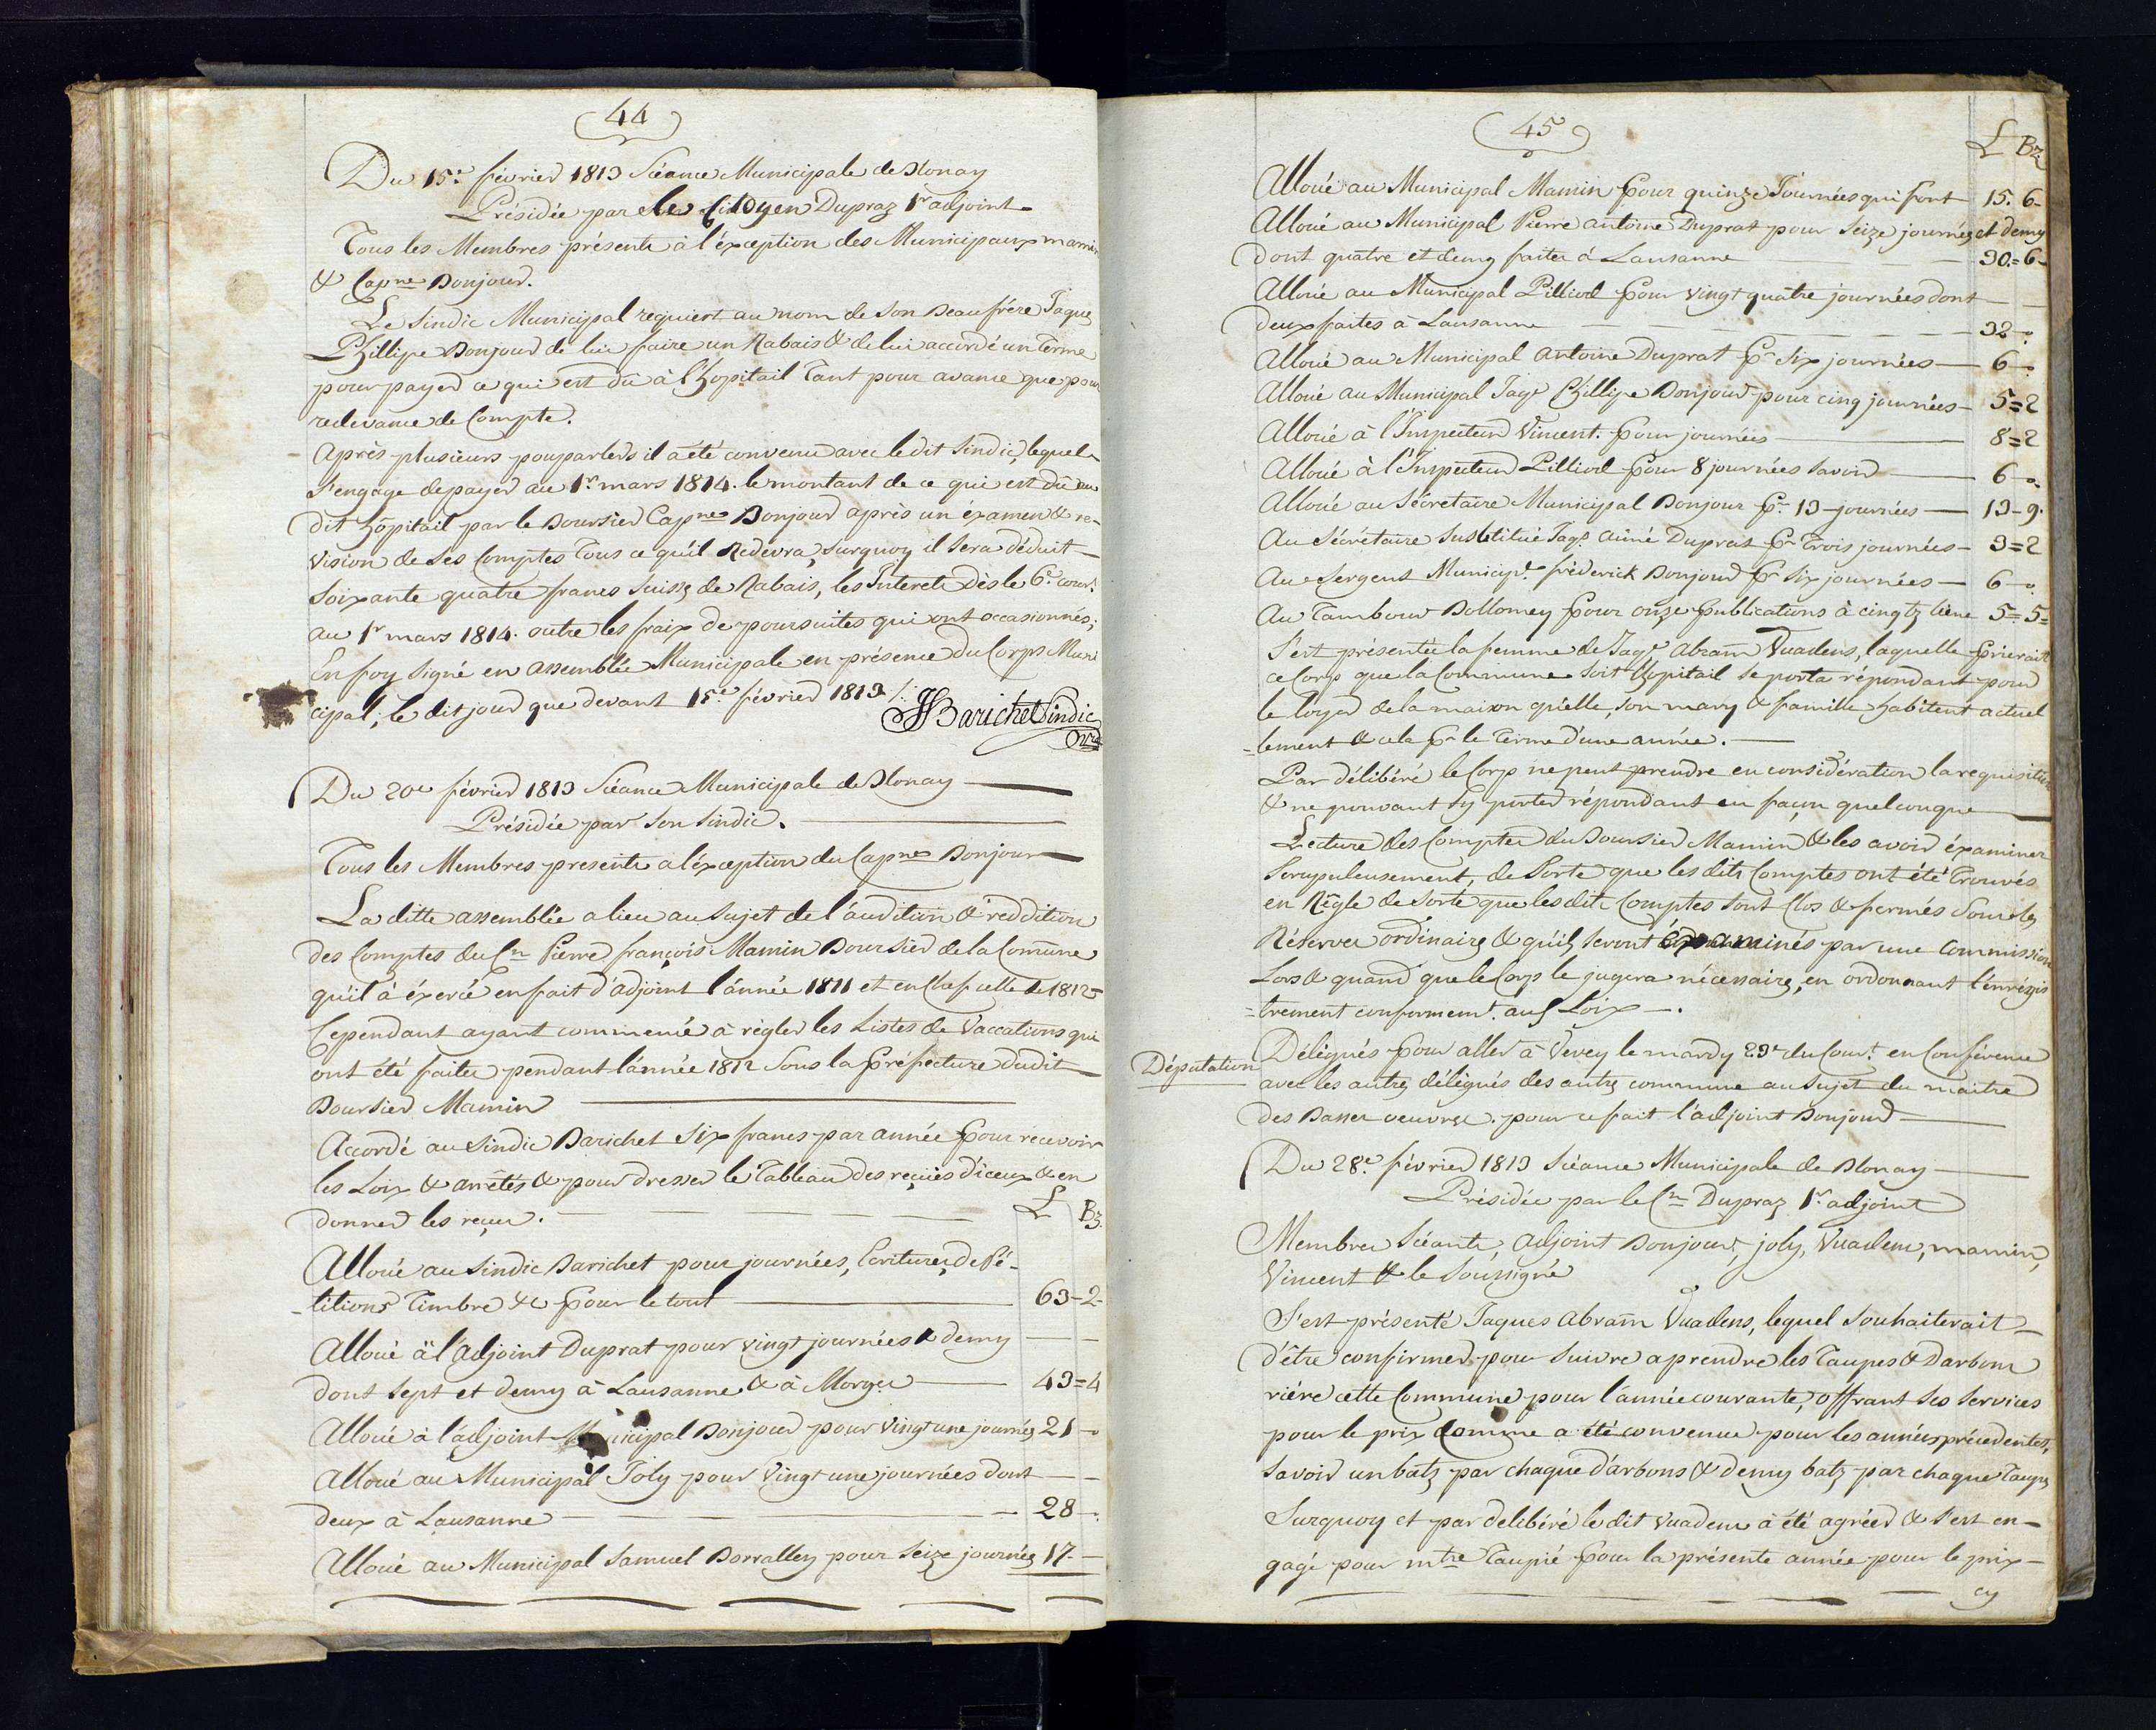 44
Du 15.e février 1813 Séance Municipale de Blonay
Présidée par le Citoyen Dupraz 1.r adjoint
Tous les Membres présents à l'éxception des Municipaux mamin
& Capne Bonjour.
Le Sindic Municipal requiert au nom de son Beaufrère Jaques
Phillipe Bonjour de lui faire un Rabais & de lui accordé un terme
pour payer ce qui est dû à l'hopitail Tant pour avance que pour
redevance de Compte.
Après plusieurs pourparlers il a été convenu avec le dit Sindic, lequel
s'engage de payer au 1.r mars 1814. le montant de ce qui est dû au
dit hôpitail par le Boursier Capne Bonjour après un éxamen & re-
vision de ses Comptes Tous ce qu'il Redevra, surquoy il sera déduit
soixante quatre francs suisses de Rabais, les Interets dès le 6.e cour.t
au 1.r mars 1814. outre les fraix de poursuites qui ont occasionnés;
En foy signé en assemblée Municipale en présence Du Corps Muni
cipal; le dit jour que devant 15.e février 1813
JJ Barichet Sindic
Du 20e février 1813 Séance Municipale de Blonay
Présidée par son Sindic.
Tous les Membres presents a l'éxception du Capne Bonjour
La ditte assemblée a lieu au sujet de l'audition & reddition
des Comptes du Cn Pierre françois Mamin Boursier de la Comune
qu'il à éxercé en fait d'adjoint l'année 1811 et en Chef celle de 1812
Cependant ayant commencé à régler les Listes de Vaccations qui
ont été faites pendant l'année 1812 sous la Préfecture dudit
Boursier Mamin
Accordé au Sindic Barichet six francs par année pour recevoir
les Loix & arrêtés & pour dresser le Tableau des reçuës d'iceux & en
donner les recus. L Bz.
Alloué au Sindic Barichet pour journées, Ecritures, de Pé-
-titions Timbre &c pour le tout 63-2-
Alloué à l'adjoint Duprat pour vingt journées & demy
dont sept et demy à Lausanne & à Morges 43=4
Alloué à l'adjoint Municipal Bonjour pour vingt une journées 21-0
Alloué au Municipal Joly pour vingt une journées dont
deux à Lausanne 28-.
Alloué au Municipal Samuel Borralley pour seize journées 17-
45
L Bz
Alloué au Municipal Mamin pour quinze Journées qui font 15.6-
Alloué au Municipal Pierre antoine Duprat pour seize journées et demy
dont quatre et demy faites à Lausanne 30.=6-
Alloué au Municipal Pilliod pour vingt quatre journées dont
deux faites à Lausanne 32-0
Alloué au Municipal antoine Duprat pr six journées 6-0
Alloué au Municipal Jaqe Phillipe Bonjour pour cinq journées 5=2
Alloué à l'Inspecteur Vincent. pour journées 8=2
Alloué à l'Inspecteur Pilliod pour 8 journées savoir 6-0.
Alloué au sécretaire Municipal Bonjour pr. 13-journées 13-9.
Au Sécrétaire Substitué Jaqs aimé Duprat pr Trois journées 3=2
Au Sergent Municipl. fréderick Bonjour pr six journées 6-0
Au Tambour Dollomey pour onze publications à cinq bz l'une 5=5=
S'est présentée la femme de Jaqe Abram Vuadens, laquelle prierait
ce Corps que la Commune soit hopitail se porta répondant pour
le loyer de la maison qu'elle, son mary & famille habitent actuel
-lement & cela pr le Terme d'une année.
Par délibéré le Corps ne peut prendre en considération la requisition
& ne pouvant s'y porter répondant en façon quelconque
Lecture des Comptes du Boursier Mamin & les avoir éxaminer
Scrupuleusement, de sorte que les dits Comptes ont été Trouvés
en Règle de sorte que les dits Comptes sont Clos & fermés sous les
Réserves ordinaires & qu'ils seront éxaminés par une Commission
Lors & quand que le Corps le jugera nécessaire, en ordonnant l'enrégis
=trement conformemt. aux Loix.
Députation
Délégués pour aller à Vevey le mardy 23e du Court. en Conférence
avec les autres délégués des autres commune au sujet du maitre
des Basses oeuvres. pour ce fait l'adjoint Bonjour
Du 28.e février 1813 Séance Municipale de Blonay
Présidée par le Cn Dupraz 1.r adjoint
Membres Séants, adjoint Bonjour, joly, Vuadens, mamin,
Vincent & le Soussigné
S'est présenté Jaques Abram Vuadens, lequel souhaiterait
d'être confirmer pour suivre a prendre les Taupes & Darbons
riére cette Commune pour l'année courante, offrant ses services
pour le prix comme a été convenue pour les années précedentes,
savoir un batz par chaque d'arbons & demy batz par chaque Taupes
Surquoy et par délibéré le dit Vuadens à été agréer & s'est en-
gagé pour mtre Taupié pour la présente année pour le prix
cy